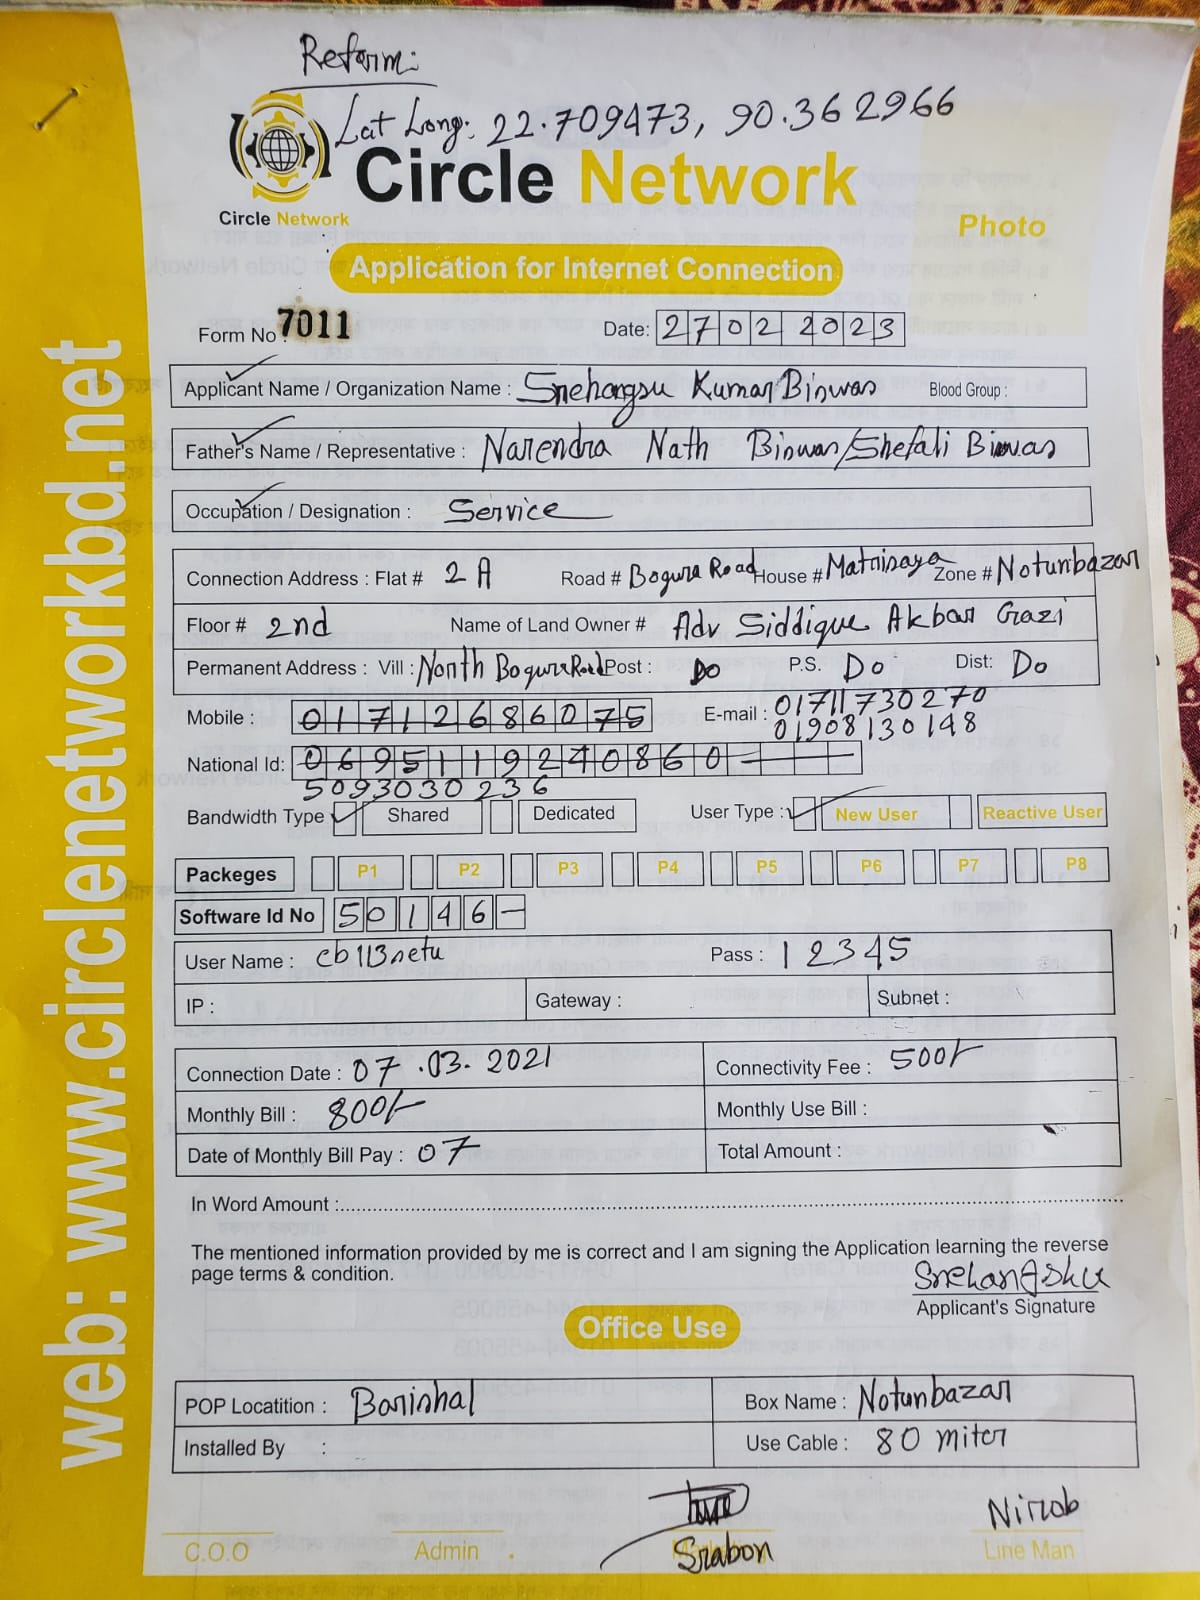 Reform:
Lat Long: 22.709473, 90.362966
Circle Network
Circle Network
Photo
Application for Internet Connection
Form No : 7011 Date: 27022023
Applicant Name / Organization Name : Snehangsu Kumar Biswas Blood Group :
Father's Name / Representative : Narendra Nath Biswas/Shefali Biswas
Occupation / Designation : Service
Connection Address : Flat # 2 A Road # Bogura Road House # Matrisaya Zone # Notunbazar
Floor # 2nd Name of Land Owner # Adv Siddique Akbar Gazi
Permanent Address : Vill : North Bogura Road Post : Do P.S. Do Dist: Do
Mobile : 01712686075 E-mail : 01711730270
01908130148
National Id: 0695119240860
5093030236
Bandwidth Type Shared Dedicated User Type : New User Reactive User
Packeges P1 P2 P3 P4 P5 P6 P7 P8
Software Id No 50146-
User Name : cb113netu Pass : 12345
IP : Gateway : Subnet :
Connection Date : 07.03.2021 Connectivity Fee : 500/-
Monthly Bill : 800/- Monthly Use Bill :
Date of Monthly Bill Pay : 07 Total Amount :
In Word Amount :
The mentioned information provided by me is correct and I am signing the Application learning the reverse
page terms & condition.
Snehangshu
Applicant's Signature
Office Use
POP Locatition : Barishal Box Name : Notunbazar
Installed By : Use Cable : 80 miter
Nirob
C.O.O Admin Srabon Line Man
web: www.circlenetworkbd.net